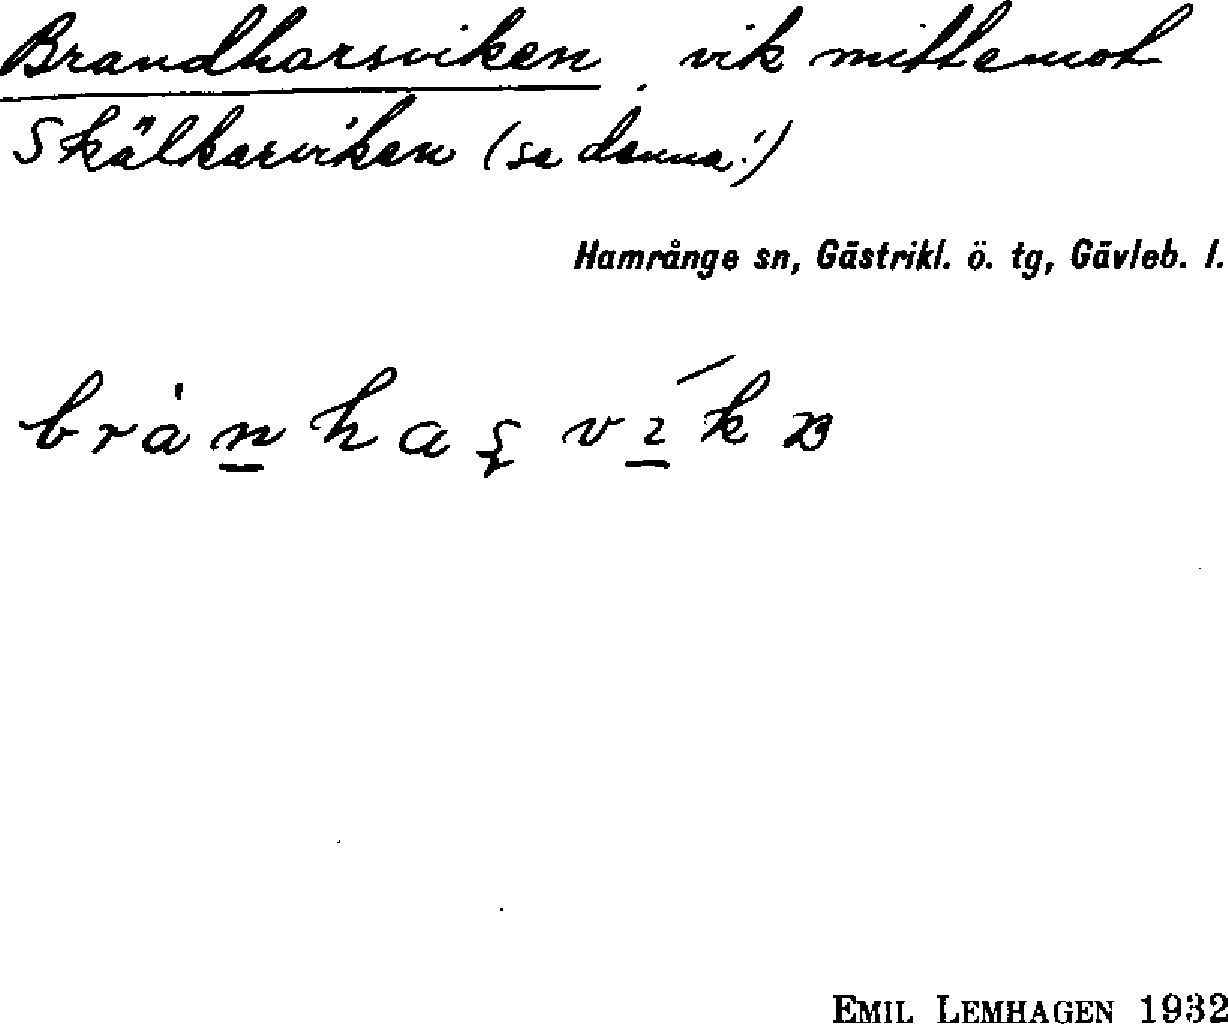 Brandharsviken, vik mittemot
Skälkarviken (se denna!)
Hamrånge sn, Gästrikl. ö. tg, Gävleb. l.
EMIL LEMHAGEN 1932